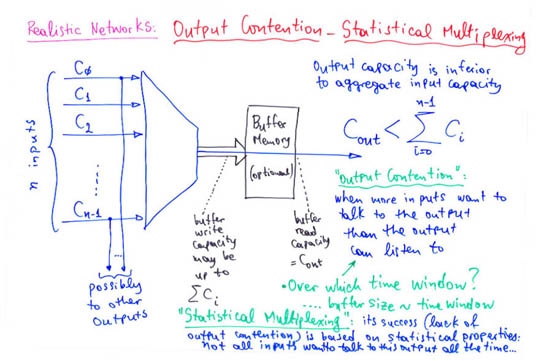 Realistic Networks: Output Contention - Statistical Multiplexing
Output capacity is inferior
to aggregate input capacity
n inputs
C∅
C₁
C₂
Cₙ₋₁
Buffer
Memory
(optional)
C_out < Σ_{i=0}^{n-1} C_i
"Output Contention":
when more inputs want to
talk to the output
than the output
can listen to
possibly
to other
outputs
buffer
write
capacity
may be
up to
ΣC_i
buffer
read
capacity
= C_out
• Over which time window?
.... buffer size ~ time window
"Statistical Multiplexing": its success (lack of
output contention) is based on statistical properties:
not all inputs want to talk to this output all the time...